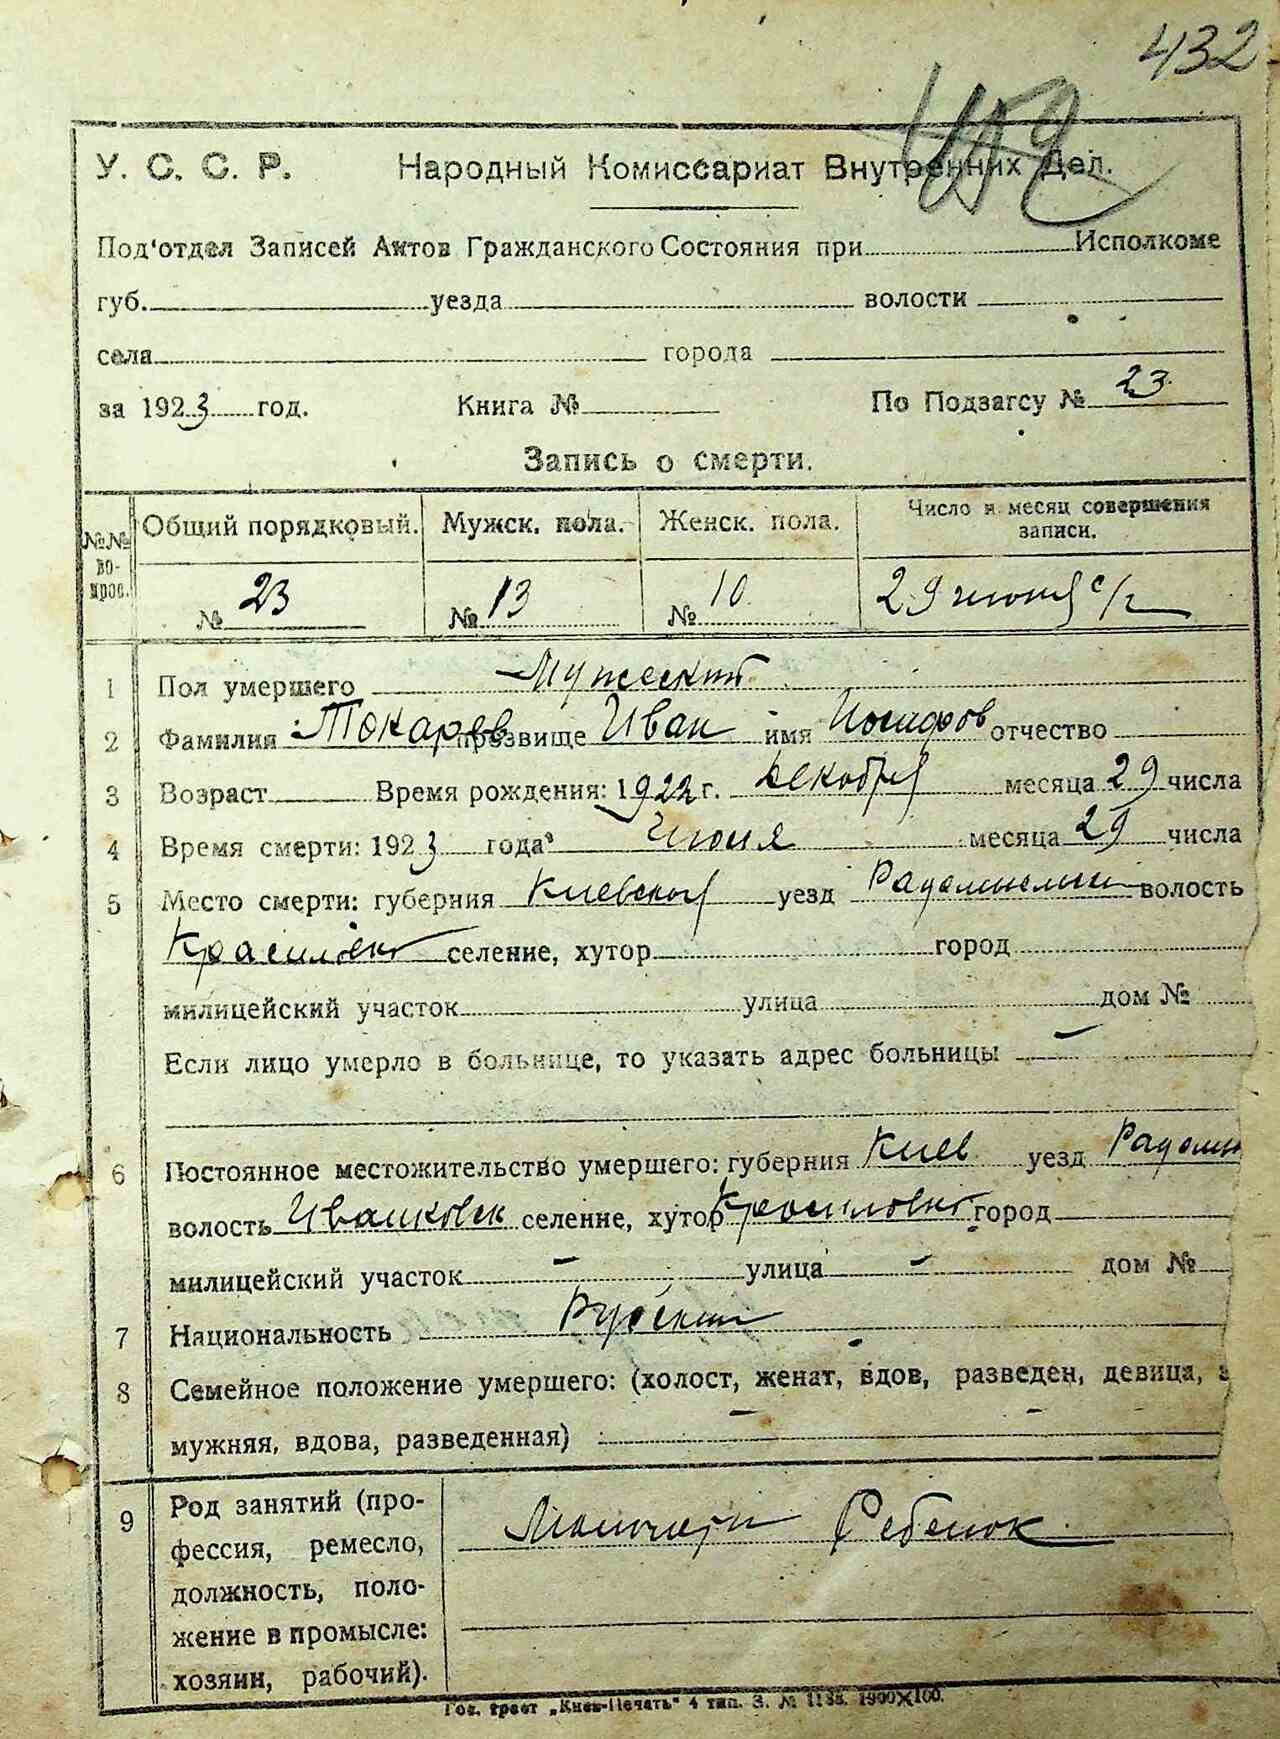 432
У. С. С. Р. Народный Комиссариат Внутренних Дел.
Под'отдел Записей Актов Гражданского Состояния при Исполкоме
губ. уезда волости
села города
за 1923 год. Книга № По Подзагсу № 23
Запись о смерти.
№№ вопрос. Общий порядковый. Мужск. пола. Женск. пола. Число и месяц совершения записи.
№ 23 № 13 № 10 29 июня с/г
1 Пол умершего Мужеский
2 Фамилия Токарев прозвище Иван имя Иосифов отчество
3 Возраст Время рождения: 1922 г. декабря месяца 29 числа
4 Время смерти: 1923 года Июня месяца 29 числа
5 Место смерти: губерния Киевской уезд волость
селение, хутор город
милицейский участок улица дом №
Если лицо умерло в больнице, то указать адрес больницы —
6 Постоянное местожительство умершего: губерния Киев уезд Радом
волость Иванковск селение, хутор город
милицейский участок – улица – дом №
7 Национальность Русский
8 Семейное положение умершего: (холост, женат, вдов, разведен, девица, з
мужняя, вдова, разведенная)
9 Род занятий (про-
фессия, ремесло,
должность, поло-
жение в промысле:
хозяин, рабочий).
Ребенок
Гос. трест „Киев-Печать" 4 тип. З. № 1188. 1900×100.